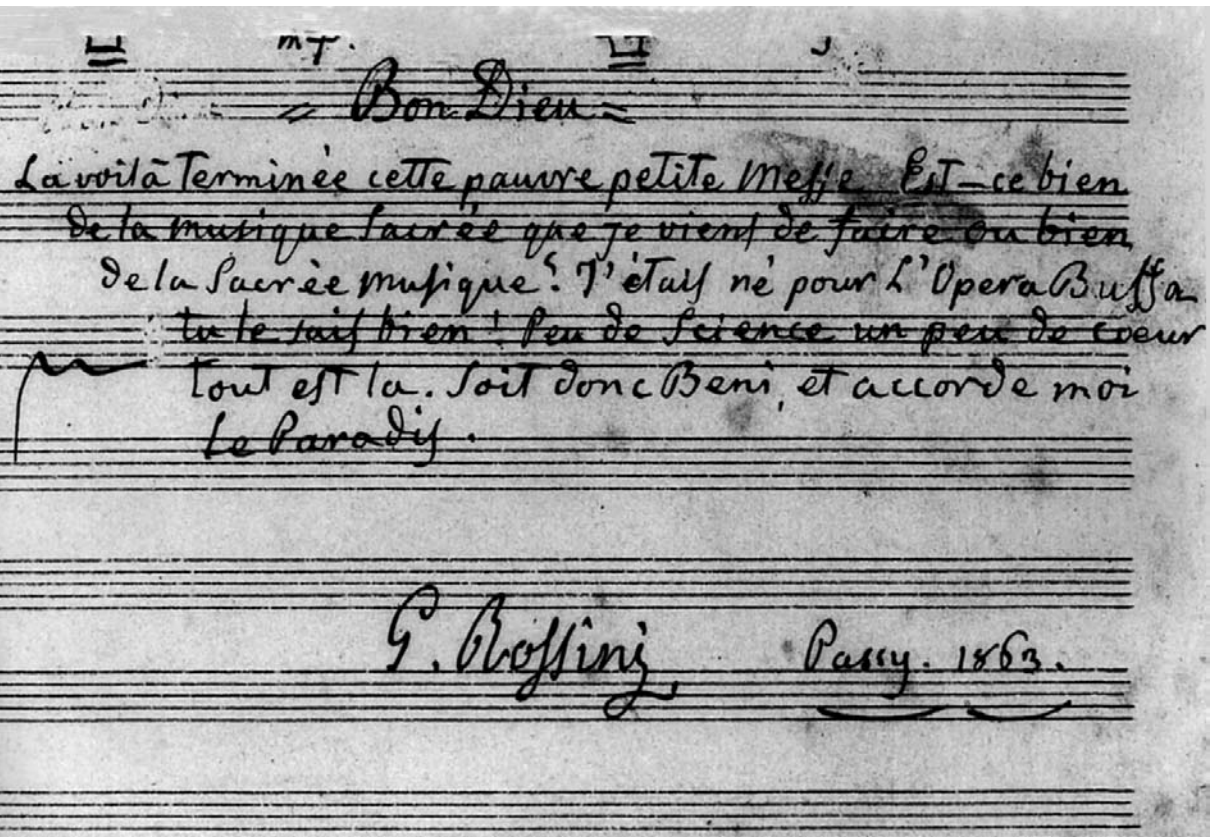 = Bon Dieu =
La voilà Terminée cette pauvre petite Messe Est-ce bien
de la musique Sacrée que je viens de faire ou bien
de la Sacrèe musique? J'étais né pour L'Opera Buffa
tu le sais bien! Peu de Science un peu de coeur
tout est la. Soit donc Beni, et accorde moi
Le Paradis.
G. Rossini Passy. 1863.